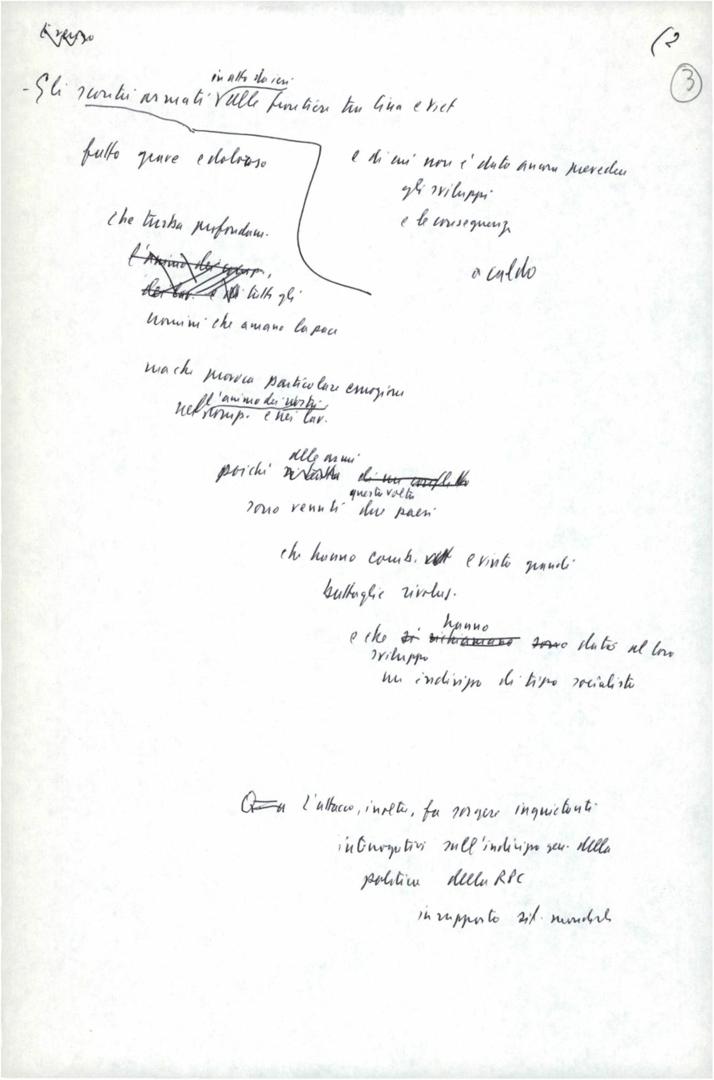 (2
3
in atto da ieri
- Gli scontri armati sulle frontiere tra Cina e Viet
fatto grave e doloroso
e di cui non è dato ancora prevedere
gli sviluppi
e le conseguenze
a caldo
che turba profondam.
l'animo dei
dei lav. e di tutti gli
uomini che amano la pace
ma che provoca particolare emozione
nell'animo dei nostri
comp. e nei lav.
alle armi
poiché di un conflitto
questa volta
sono venuti due paesi
che hanno comb. e vinto grandi
battaglie rivoluz.
hanno
e che si richiamano sono dato al loro
sviluppo
un indirizzo di tipo socialista
L'attacco, inoltre, fa sorgere inquietanti
interrogativi sull'indirizzo gen. della
politica della RPC
in rapporto sit. mondiale